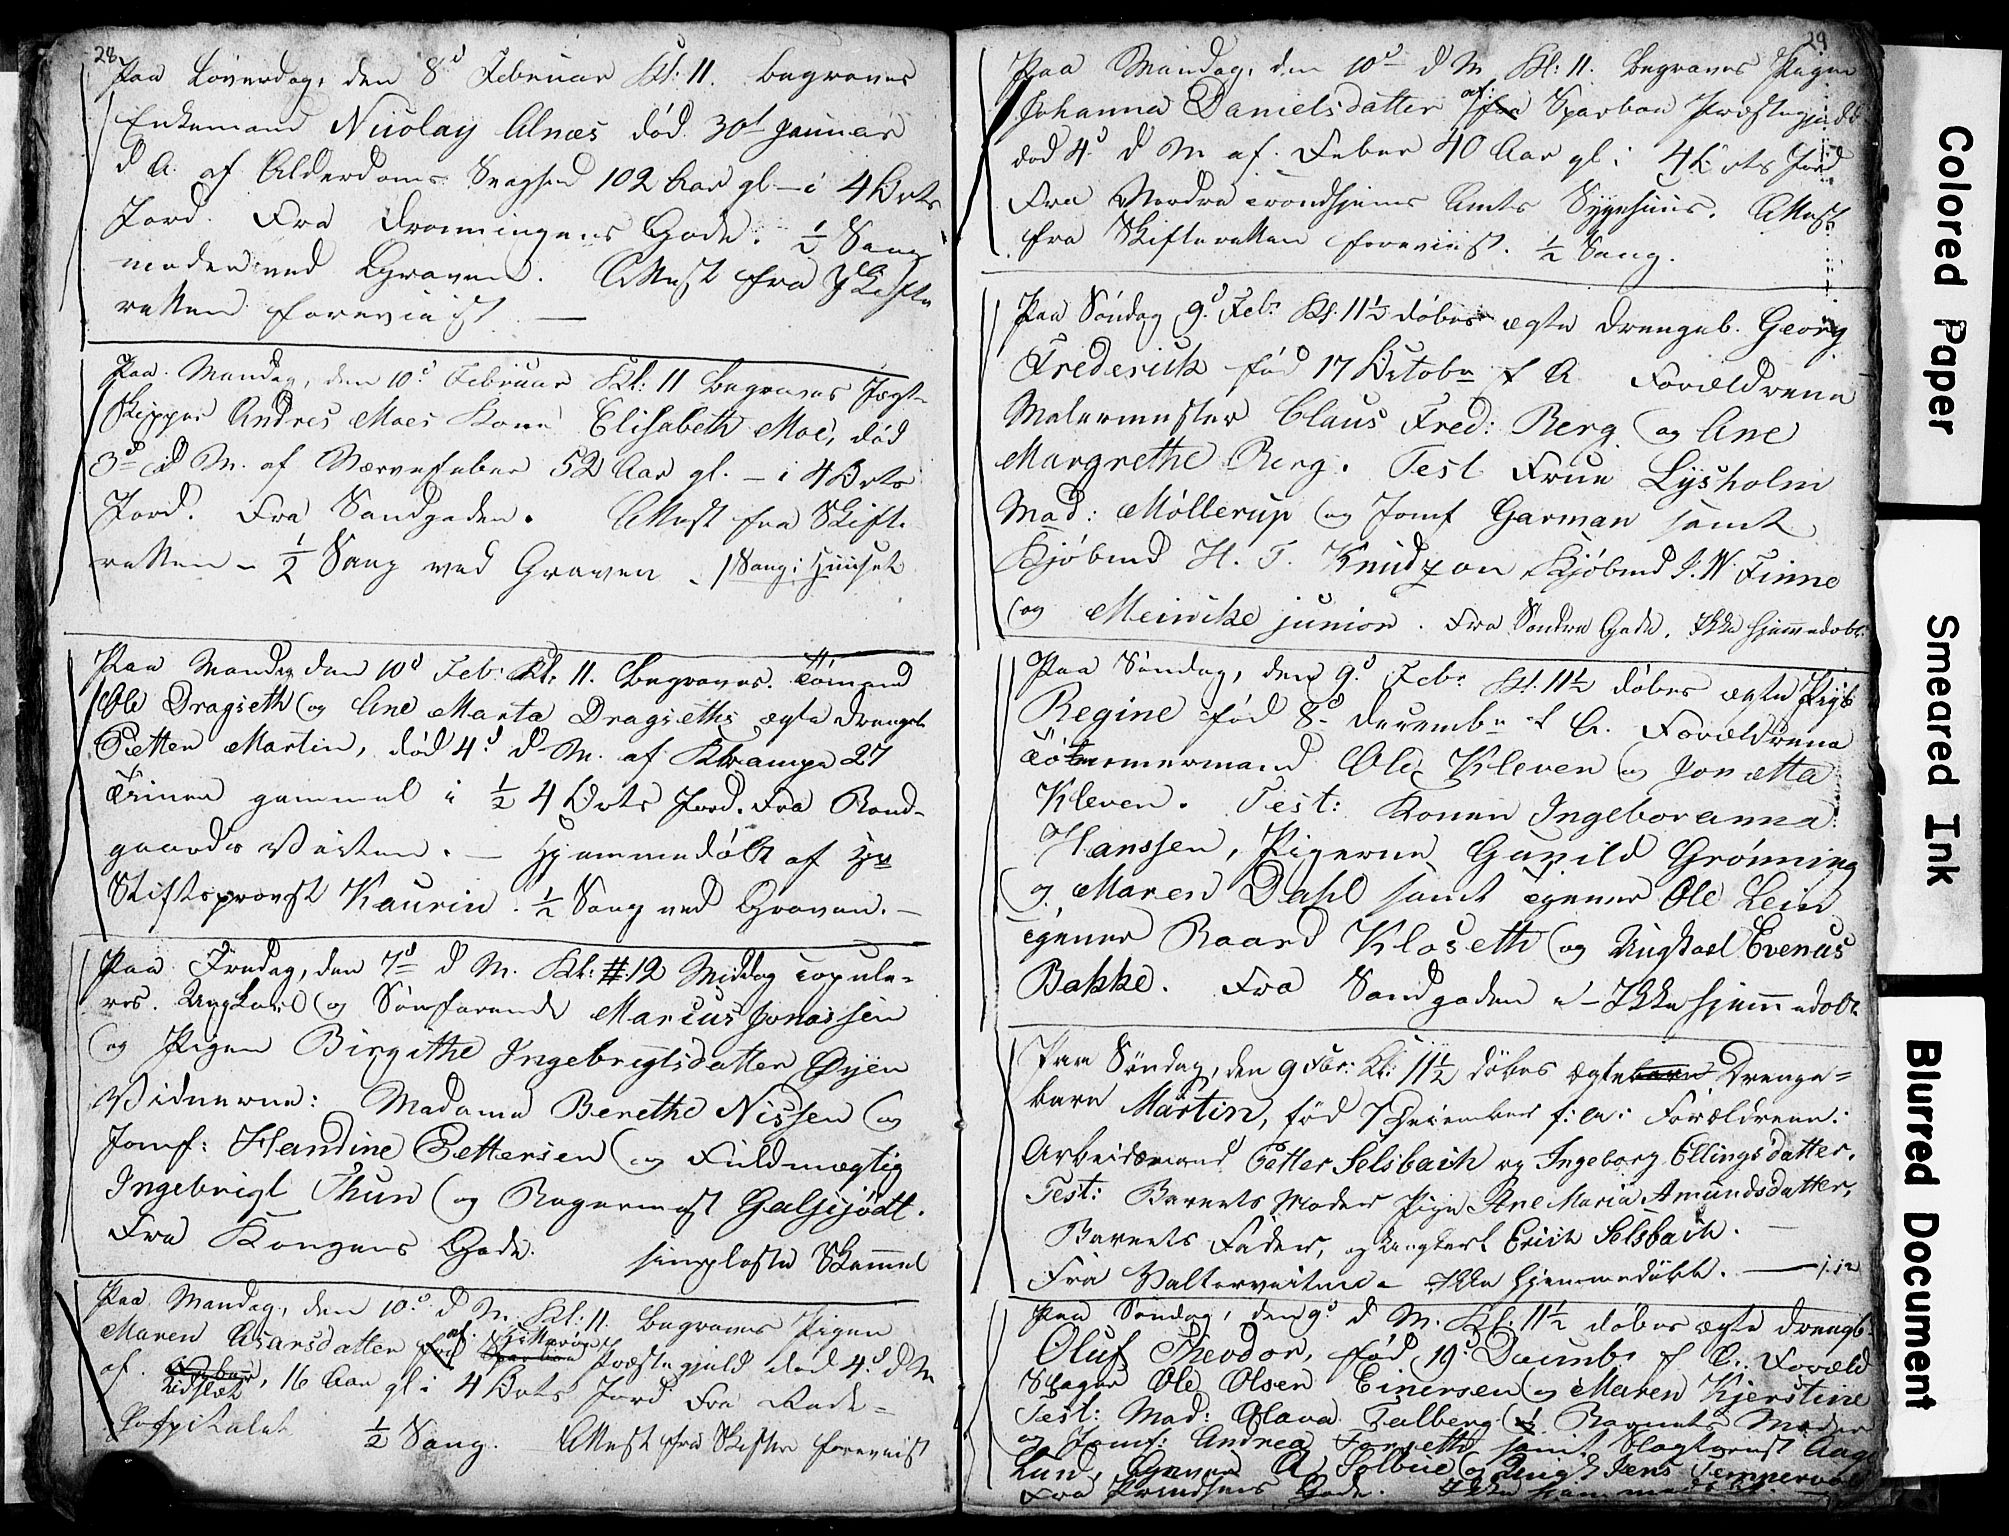 28.
Paa Løverdag, den 8d Februar Kl: 11. begraves
Enkemand Nicolay Alnæs død 30t Januar
d A. af Alderdoms Svaghed 102 Aar gl – i 4 Orts
Jord. Fra Dronningens Gade. ½ Sang
ved Graven. Attest fra Skifte
retten foreviist —
Paa Mandag, den 10d Februar Kl: 11 begraves Jægt-
skipper Andres Moes Kone Elisabeth Moe, død
3d d M. af Nervefeber 52 Aar gl. – i 4 Orts
Jord. Fra Sandgaden. Attest fra Skifte
retten – ½ Sang ved Graven – 1 Sang i Huuset
Paa Mandag den 10d Feb: Kl: 11. begraves. Tømmd
Ole Dragseth og Ane Marta Dragseths ægte Drengeb
Petter Martin, død 4d d M. af Krampe 27
Timer gammel i ½ 4 Orts Jord. Fra Rand-
gaards Veiten. — Hjemmedøbt af Hr
Stiftsprovst Kaurin. ½ Sang ved Graven. –
Paa Fredag, den 7d d M. Kl: 12 Middag copule-
res. Ungkarl og Søefarende Marcus Jonassen
og Pigen Birgithe Ingebrigtsdatter Øyen
Vidnerne: Madame Berethe Nissen og
Jomf: Handine Pettersen og Fuldmægtig
Ingebrigt Thun og Bagermest Galschjødt.
Fra Kongens Gade. simpleste Skammel
Paa Mandag, den 10d d M. Kl: 11. begraves Pigen
Maren datter fra af Sparboe Præstegjeld død 4d d M
af, 16 Aar gl i 4 Orts Jord Fra Rade-
Hospitalet ½ Sang. Attest fra Skiften foreviist
29
Paa Mandag, den 10d d M Kl: 11. begraves Pigen
Johanna Danielsdatter fra af: Sparboe Præstegjeld
død 4d d M af. Feber 40 Aar gl i 4 Orts Jord
Fra Nordre Trondhjems Amts Sygehuus. Attest
fra Skifteretten foreviist. ½ Sang.
Paa Søndag 9d Feb: Kl. 11½ døbes ægte Drengeb. Georg
Frederich fød 17 Octobr f A Forældrene
Malermester Claus Fred: Berg og Ane
Margrethe Berg. Test Frue Lysholm
Mad: Møllerup og Jomf Garman samt
Kjøbmd H. T. Knudzon Kjøbmd I. W. Finne
og Meincke junior. Fra Søndre Gade. Ikke hjemmedøbt.
Paa Søndag, den 9d Feb: Kl. 11½ døbes ægte Pigeb
Regine fød 8d Decembr f A. Forældrene
Tømmermand Ole Kleven og Jonetta
Kleven. Test: Konen Ingeboranna
Hanssen, Pigerne Gunild Grønning
og Maren Dahl samt Tjener Ole Lein
Tjener Baard Kloseth og Ungkarl Evenus
Bakke. Fra Sandgaden – Ikke hjemmedøbt
Paa Søndag, den 9 Febr: Kl: 11½ døbes ægte barn Drenge=
barn Martin, fød 7 December f: A: Forældrene:
Arbeidsmand Petter Selsbach og Ingeborg Ellingsdatter.
Test: Barnets Moder Pige Ane Maria Amundsdatter,
Barnets Fader, og Ungkarl Erich Selsbach. —
Fra Valterveitene – Ikke hjemmedøbt. —
Paa Søndag, den 9d d M. Kl: 11½ døbes ægte Drengb.
Oluf Theodor, fød 19d Decemb: f A. Foræld
Ole Olsen Einersen og Maren Kjerstine
Test: Mad: Olava Falberg Barnets Moder
og Jomf: Andrea samt Slagtermst Aage
Lund, Tjener A Solbue og Ungk Jens
Fra Prindsens Gade. Ikke hjemmedøbt.
Colored Paper
Smeared Ink
Blurred Document